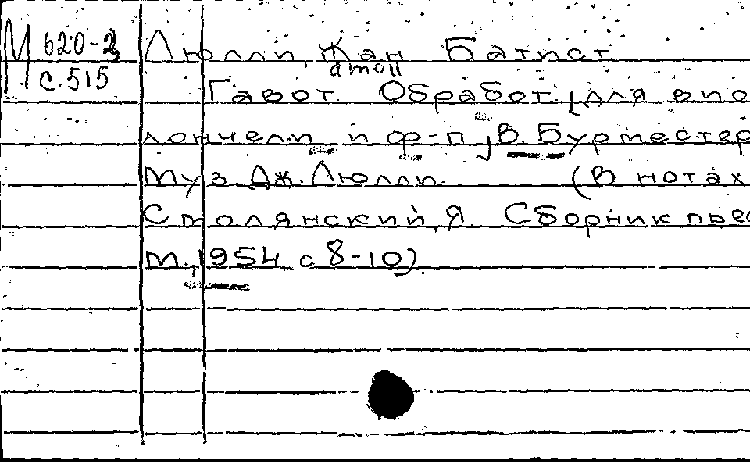 М 620-2
с.515
Люлли, Жан Батист
a moll
Гавот. Обработ. (для вио
лончели и ф-п, В. Бурместер
Муз. Дж. Люлли. (В нотах
Столянский, Я. Сборник пьес
М., 1954 с 8-10)